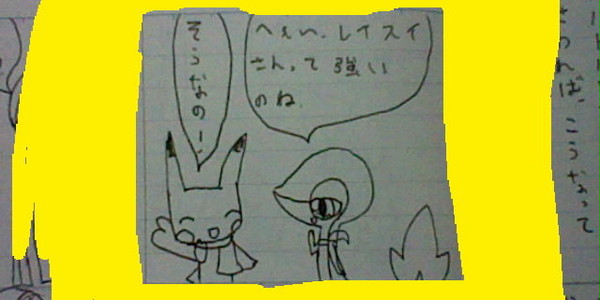 へぇい、レイスイ
さんって 強い
のね.
そうなのー!
れば、こうなって